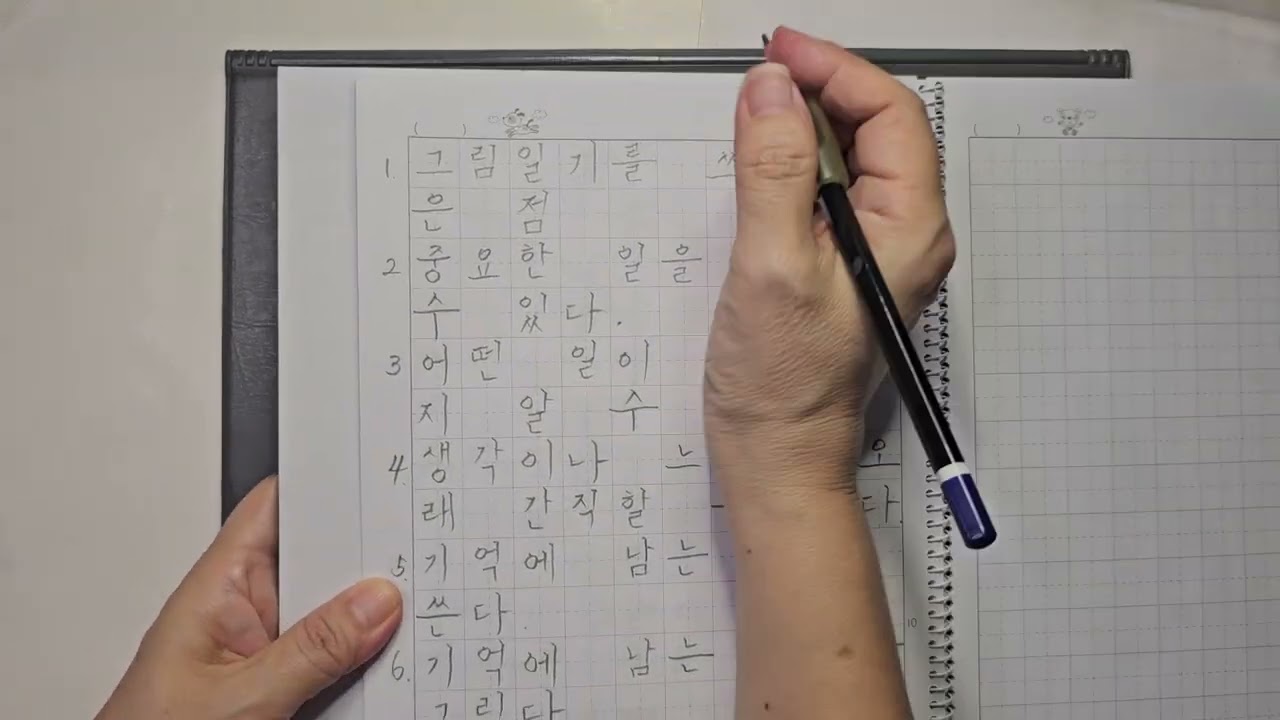 ( )
( )
1. 그림일기를
은 점
2 중요한 일을
수 있다.
3 어떤 일이
지 알 수
4. 생각이나 느 오
래 간직할 다.
5. 기억에 남는
쓴다.
6. 기억에 남는
그린다
10